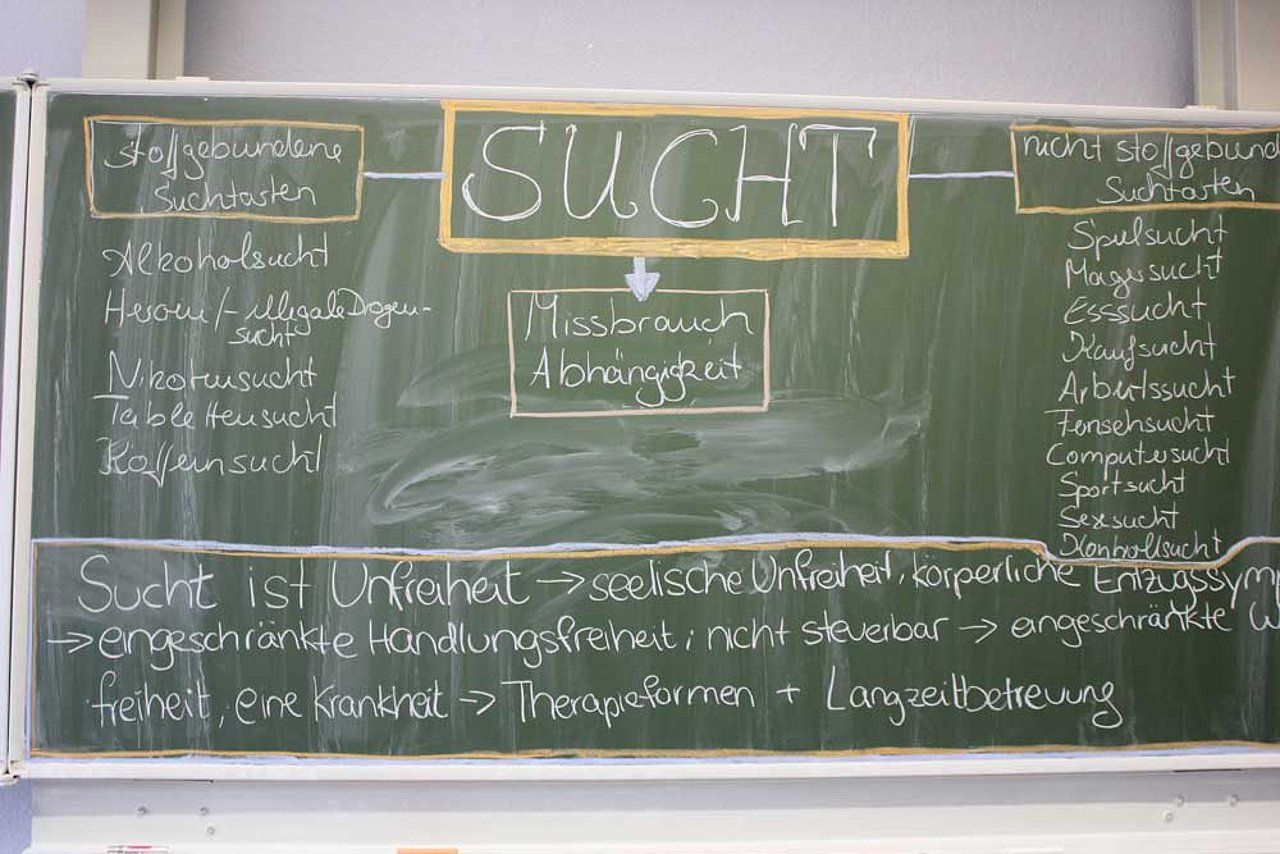 stoffgebundene
Suchtarten
SUCHT
nicht stoffgebund
Suchtarten
Alkoholsucht
Heroin/-illegale Drogen-
sucht
Nikotinsucht
Tablettensucht
Koffeinsucht
Missbrauch
Abhängigkeit
Spielsucht
Magersucht
Esssucht
Kaufsucht
Arbeitssucht
Fernsehsucht
Computersucht
Sportsucht
Sexsucht
Kontrollsucht
Sucht ist Unfreiheit → seelische Unfreiheit, körperliche Entzugssym
→ eingeschränkte Handlungsfreiheit; nicht steuerbar → eingeschränkte W
freiheit, eine Krankheit → Therapieformen + Langzeitbetreuung